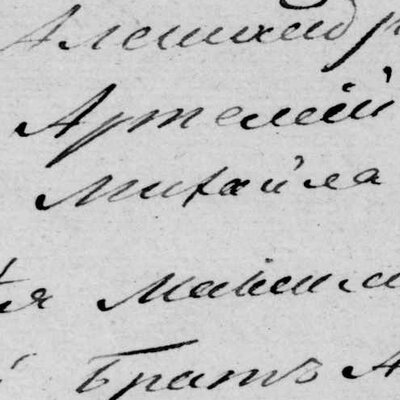 Александр
Артемій
Михайла
ія Максим
й Братъ А